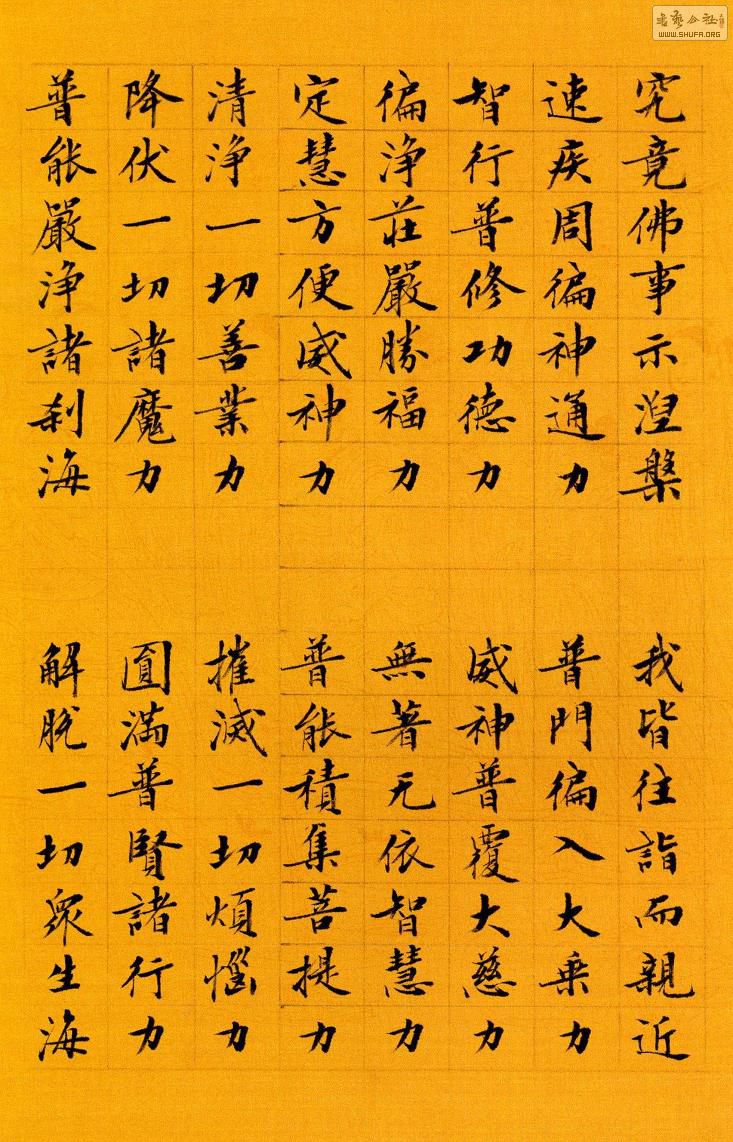 究竟佛事示涅槃　我皆往詣而親近
速疾周徧神通力　普門徧入大乗力
智行普修功德力　威神普覆大慈力
徧浄莊嚴勝福力　無著无依智慧力
定慧方便威神力　普能積集菩提力
清浄一切善業力　摧滅一切煩惱力
降伏一切諸魔力　圓滿普賢諸行力
普能嚴浄諸刹海　解脫一切眾生海
WWW.SHUFA.ORG